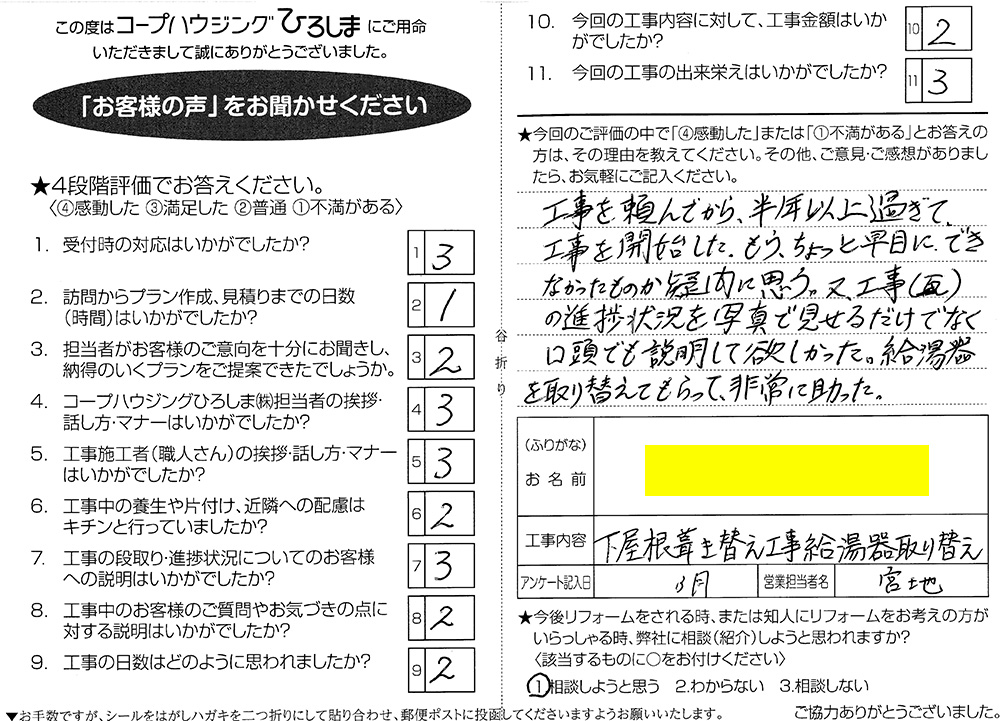 この度はコープハウジングひろしまにご用命
いただきまして誠にありがとうございました。
「お客様の声」をお聞かせください
★4段階評価でお答えください。
〈④感動した ③満足した ②普通 ①不満がある〉
1. 受付時の対応はいかがでしたか?
1 3
2. 訪問からプラン作成、見積りまでの日数
(時間)はいかがでしたか?
2 1
3. 担当者がお客様のご意向を十分にお聞きし、
納得のいくプランをご提案できたでしょうか。
3 2
4. コープハウジングひろしま㈱担当者の挨拶・
話し方・マナーはいかがでしたか?
4 3
5. 工事施工者(職人さん)の挨拶・話し方・マナー
はいかがでしたか?
5 3
6. 工事中の養生や片付け、近隣への配慮は
キチンと行っていましたか?
6 2
7. 工事の段取り・進捗状況についてのお客様
への説明はいかがでしたか?
7 3
8. 工事中のお客様のご質問やお気づきの点に
対する説明はいかがでしたか?
8 2
9. 工事の日数はどのように思われましたか?
9 2
▼お手数ですが、シールをはがしハガキを二つ折りにして貼り合わせ、郵便ポストに投函してくださいますようお願いいたします。
谷折り
10. 今回の工事内容に対して、工事金額はいか
がでしたか?
10 2
11. 今回の工事の出来栄えはいかがでしたか?
11 3
★今回のご評価の中で「④感動した」または「①不満がある」とお答えの
方は、その理由を教えてください。その他、ご意見・ご感想がありまし
たら、お気軽にご記入ください。
工事を頼んでから、半年以上過ぎて、
工事を開始した。もう、ちょっと早目に、でき
なかったものか疑内に思う。又、工事(瓦)
の進捗状況を写真で見せるだけでなく
口頭でも説明して欲しかった。給湯器
を取り替えてもらって、非常に助った。
(ふりがな)
お名前
工事内容 下屋根葺き替え工事給湯器取り替え
アンケート記入日 3月 営業担当者名 宮地
★今後リフォームをされる時、または知人にリフォームをお考えの方が
いらっしゃる時、弊社に相談(紹介)しようと思われますか?
〈該当するものに○をお付けください〉
①相談しようと思う 2.わからない 3.相談しない
ご協力ありがとうございました。